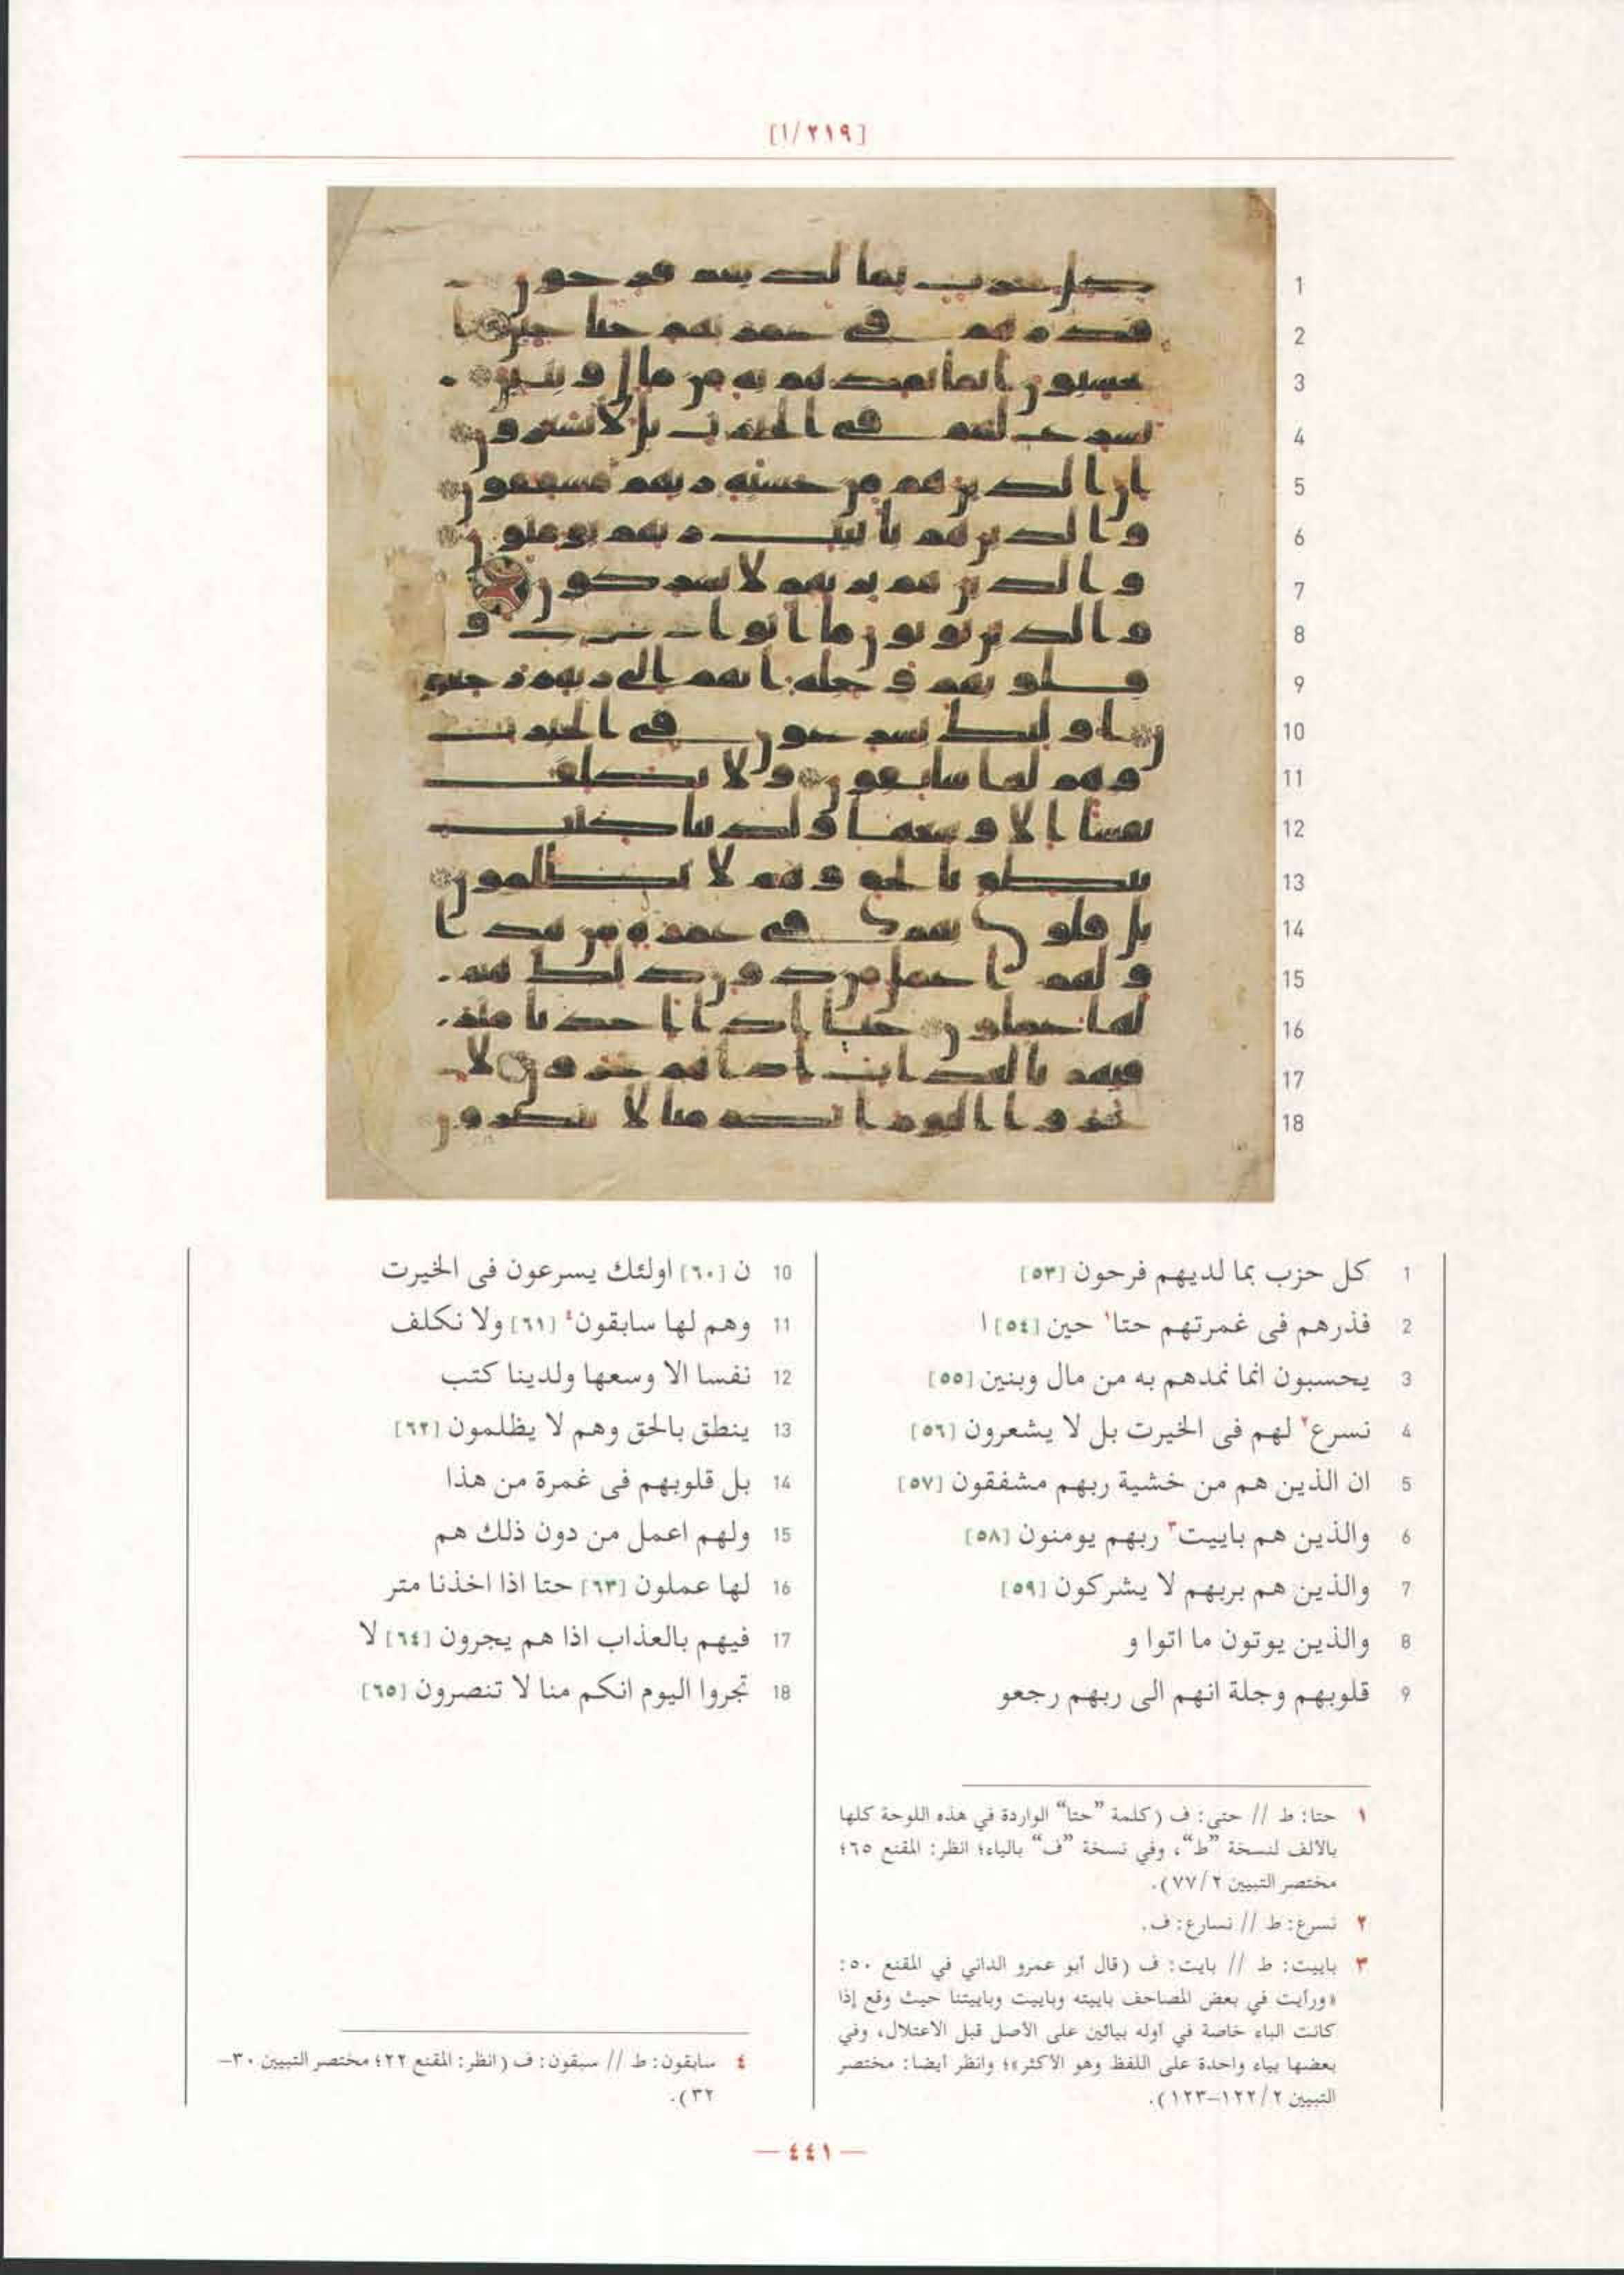 [١/٢١٩]
1 كل حزب بما لديهم فرحون [٥٣]
2 فذرهم فى غمرتهم حتا١ حين [٥٤] ا
3 يحسبون انما نمدهم به من مال وبنين [٥٥]
4 نسرع٢ لهم فى الخيرت بل لا يشعرون [٥٦]
5 ان الذين هم من خشية ربهم مشفقون [٥٧]
6 والذين هم باييت٣ ربهم يومنون [٥٨]
7 والذين هم بربهم لا يشركون [٥٩]
8 والذين يوتون ما اتوا و
9 قلوبهم وجلة انهم الى ربهم رجعو
10 ن [٦٠] اولئك يسرعون فى الخيرت
11 وهم لها سابقون٤ [٦١] ولا نكلف
12 نفسا الا وسعها ولدينا كتب
13 ينطق بالحق وهم لا يظلمون [٦٢]
14 بل قلوبهم فى غمرة من هذا
15 ولهم اعمل من دون ذلك هم
16 لها عملون [٦٣] حتا اذا اخذنا متر
17 فيهم بالعذاب اذا هم يجرون [٦٤] لا
18 تجروا اليوم انكم منا لا تنصرون [٦٥]
١ حتا: ط // حتى: ف (كلمة "حتا" الواردة في هذه اللوحة كلها
بالألف لنسخة "ط"، وفي نسخة "ف" بالياء؛ انظر: المقنع ٦٥؛
مختصر التبيين ٧٧/٢).
٢ نسرع: ط // نسارع: ف.
٣ باييت: ط // بايت: ف (قال أبو عمرو الداني في المقنع ٥٠:
«ورأيت في بعض المصاحف باييته وباييت وباييتنا حيث وقع إذا
كانت الباء خاصة في أوله بيائين على الأصل قبل الاعتلال، وفي
بعضها بياء واحدة على اللفظ وهو الأكثر»؛ وانظر أيضا: مختصر
التبيين ١٢٢/٢–١٢٣).
٤ سابقون: ط // سبقون: ف (انظر: المقنع ٢٢؛ مختصر التبيين ٣٠–
٣٢).
— ٤٤١ —